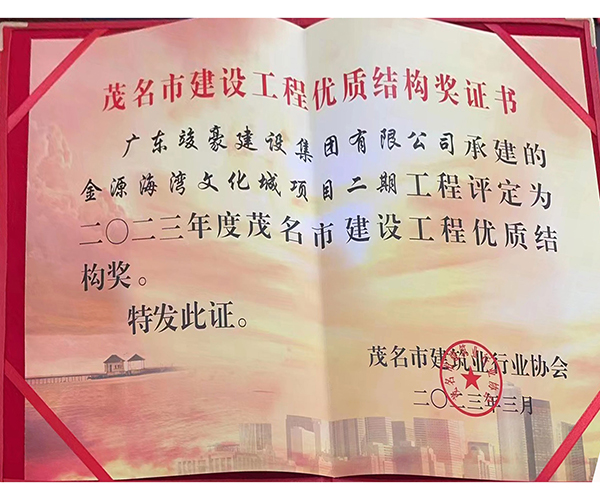 茂名市建设工程优质结构奖证书
广东竣豪建设集团有限公司承建的
金源海湾文化城项目二期工程评定为
二〇二三年度茂名市建设工程优质结
构奖。
特发此证。
茂名市建筑业行业协会
二〇二三年三月